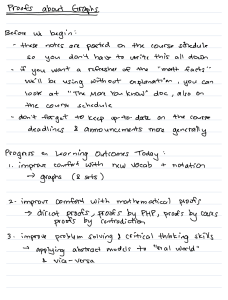 Proofs about Graphs
Before we begin:
- these notes are posted on the course schedule
so you don't have to write this all down
- if you want a refresher of the "math facts"
we'll be using without explanation, you can
look at "The More You Know" doc, also on
the course schedule
- don't forget to keep up-to-date on the course
deadlines & announcements more generally
Progress on Learning Outcomes Today:
1. improve comfort with new vocab + notation
→ graphs (& sets)
2. improve comfort with mathematical proofs
→ direct proofs, proofs by PHP, proofs by cases
proofs by contradiction
3. improve problem solving & critical thinking skills
→ applying abstract models to "real world"
& vice-versa